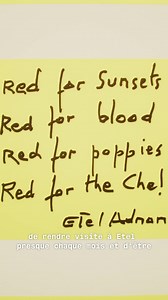 Red for Sunsets
Red for blood
Red for poppies
Red for the Che!
Etel Adnan
de rendre visite à Etel
presque chaque mois et d'être